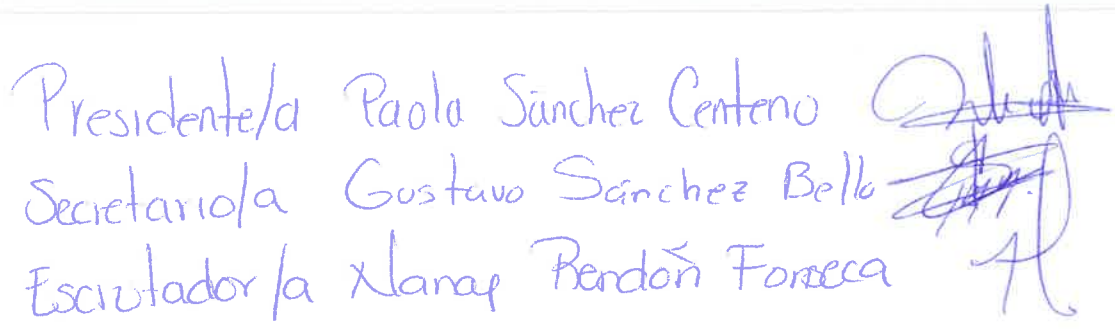 Presidente/a Paola Sánchez Centeno
Secretario/a Gustavo Sánchez Bello
Escrutador/a Rendón Fonseca